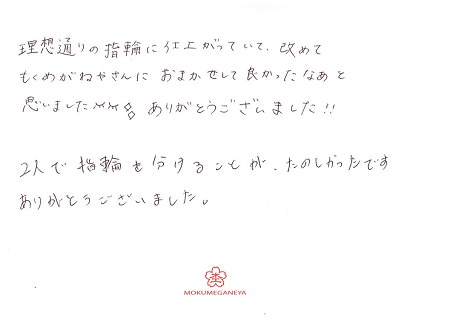 理想通りの指輪に仕上がっていて、改めて
もくめがねやさんに おまかせして良かったなあと
思いました ありがとうございました!!
2人で指輪を分けることが、たのしかったです
ありがとうございました。
MOKUMEGANEYA